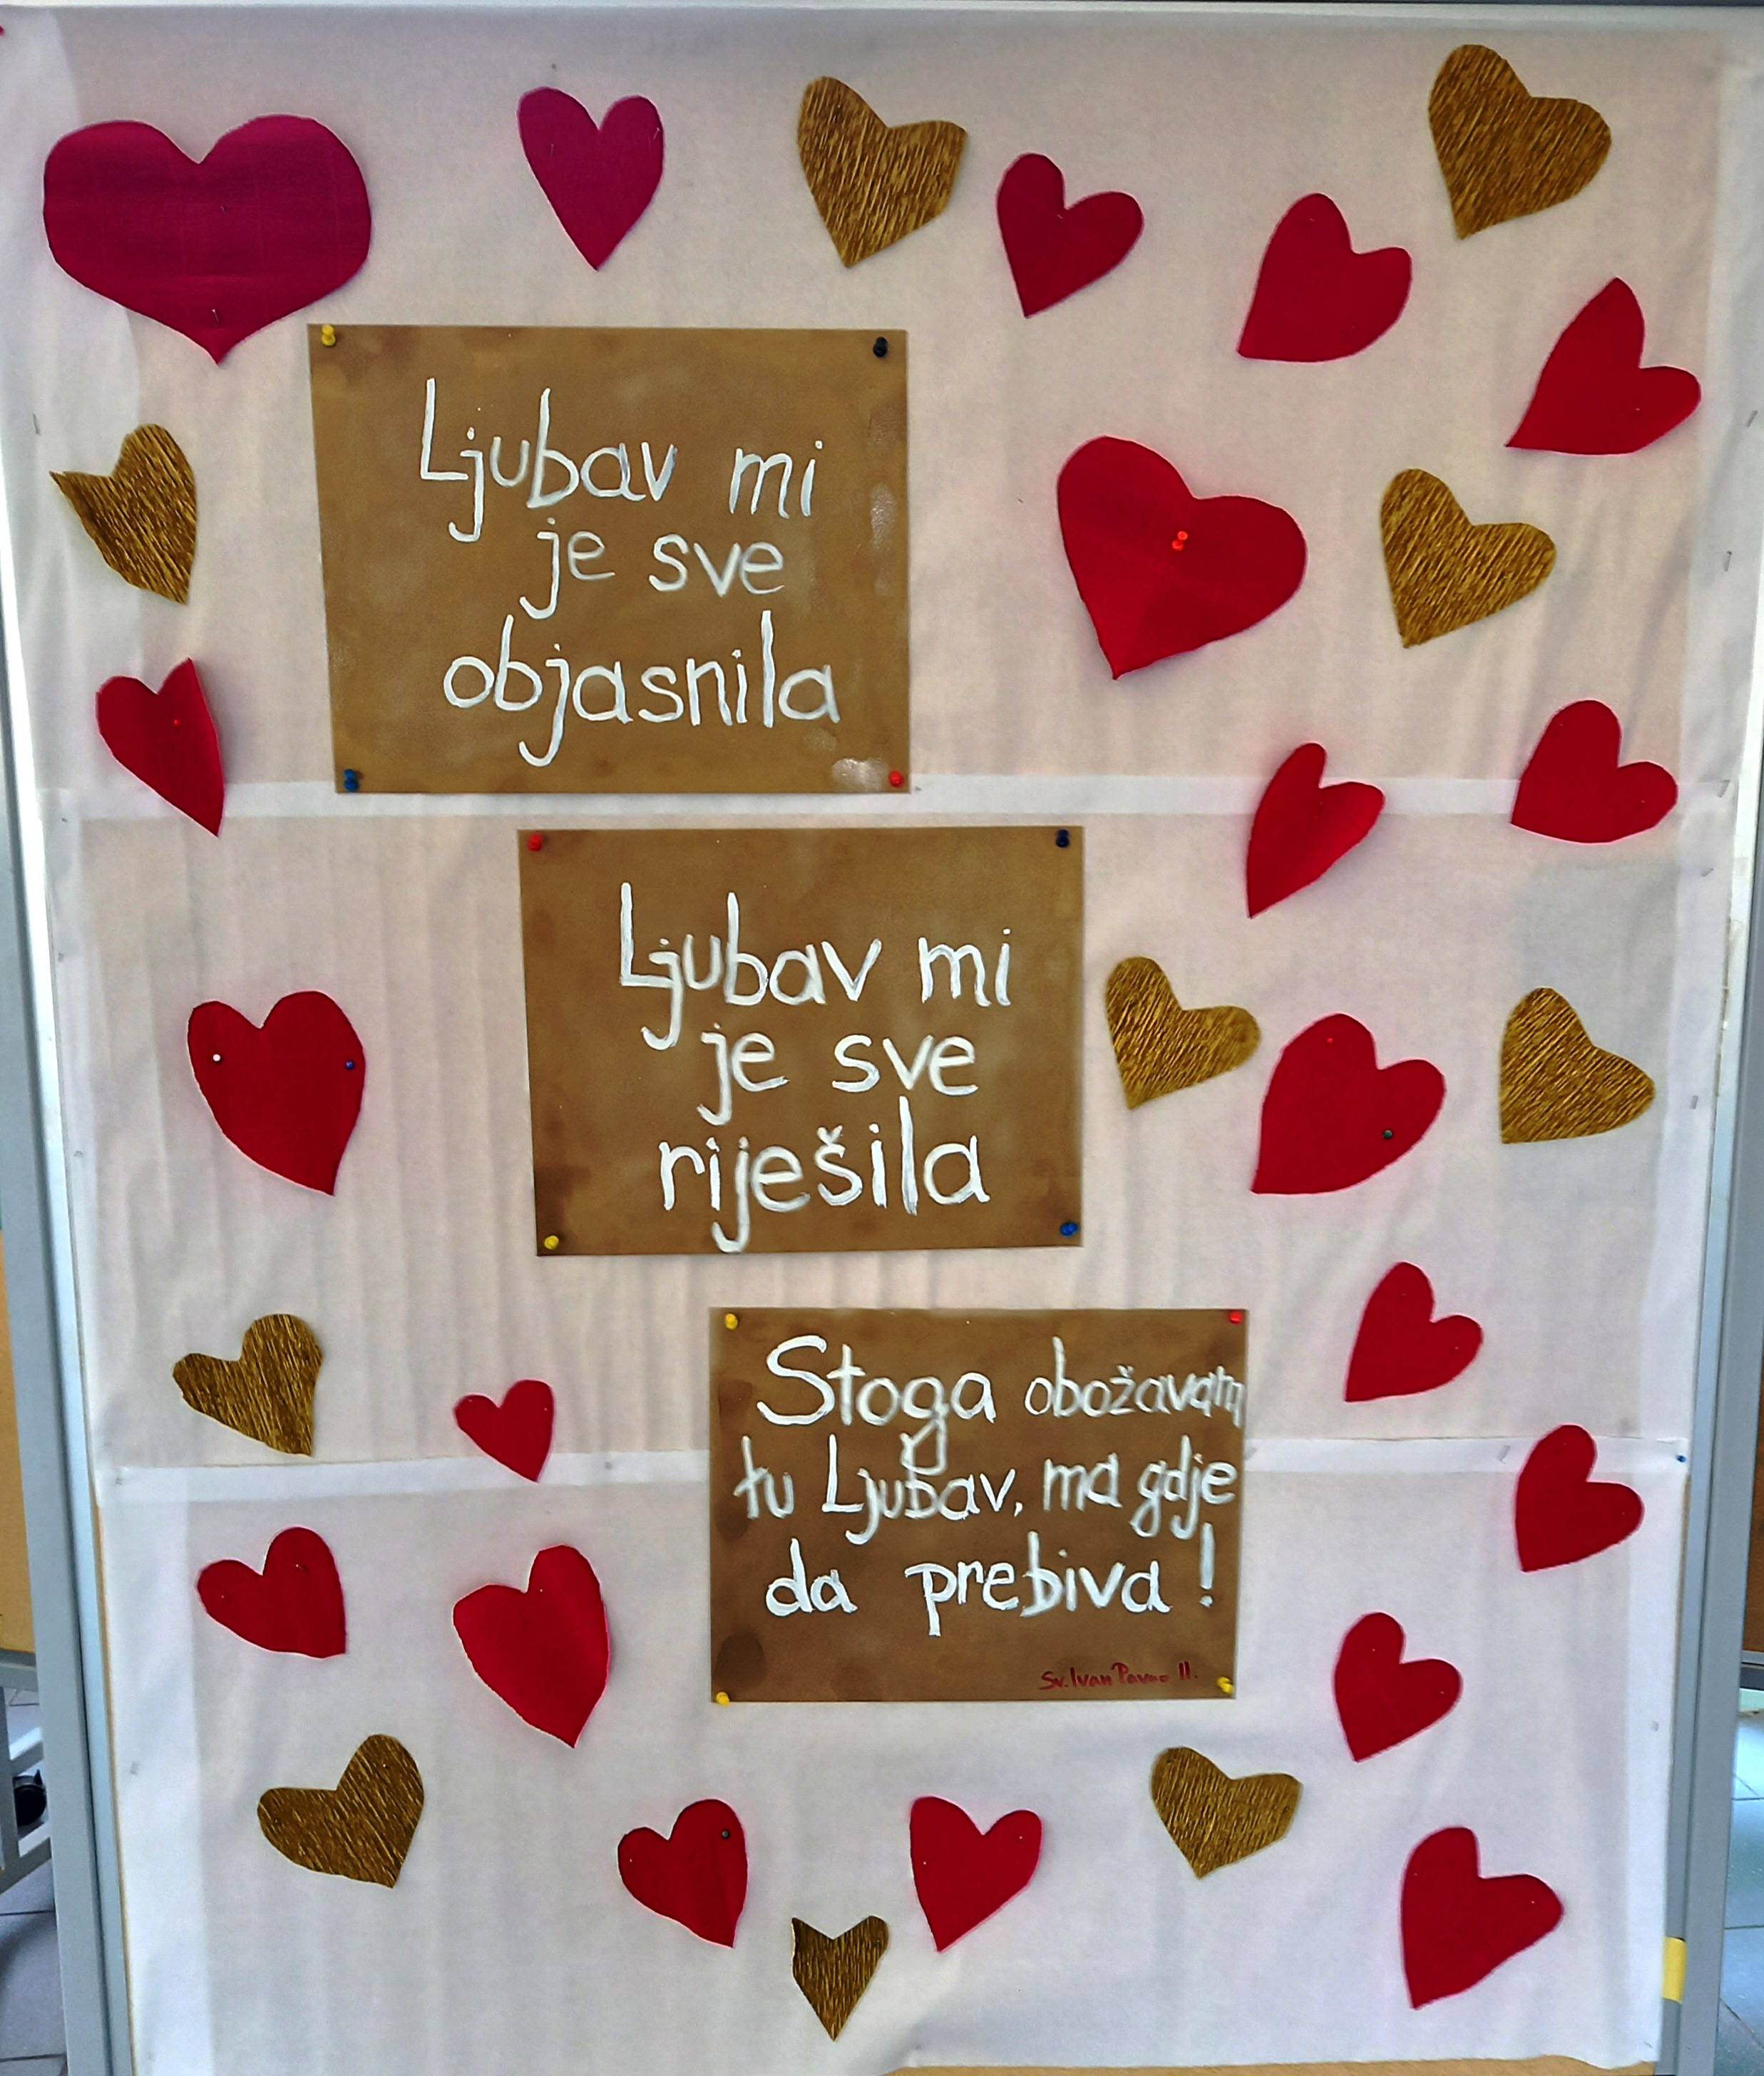 Ljubav mi
je sve
objasnila
Ljubav mi
je sve
riješila
Stoga obožavam
tu Ljubav, ma gdje
da prebiva!
Sv. Ivan Pavao II.